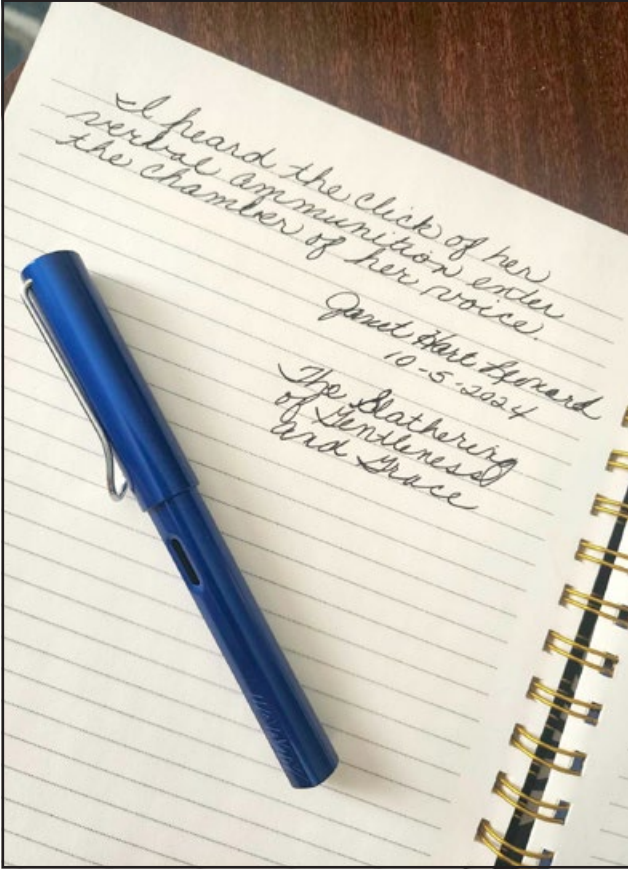 I heard the click of her
verbal ammunition enter
the chamber of her voice.
Janet Hart Leonard
10-5-2024
The Slathering
of Gentleness
and Grace
LAMY